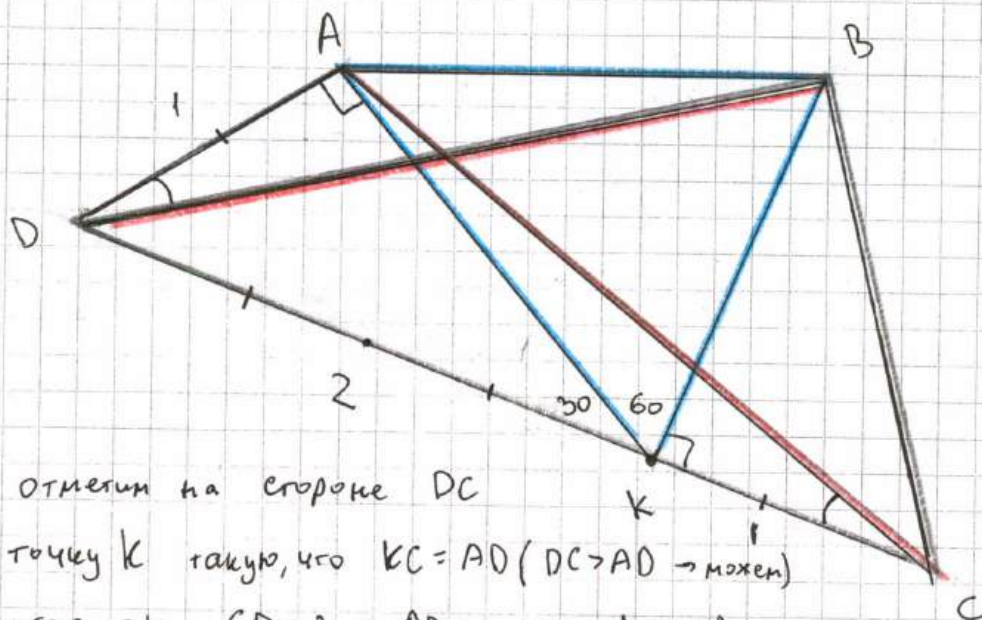 A
B
1
D
2
30 60
K
1
отметим на стороне DC
точку K такую, что KC = AD (DC > AD → можем)
C